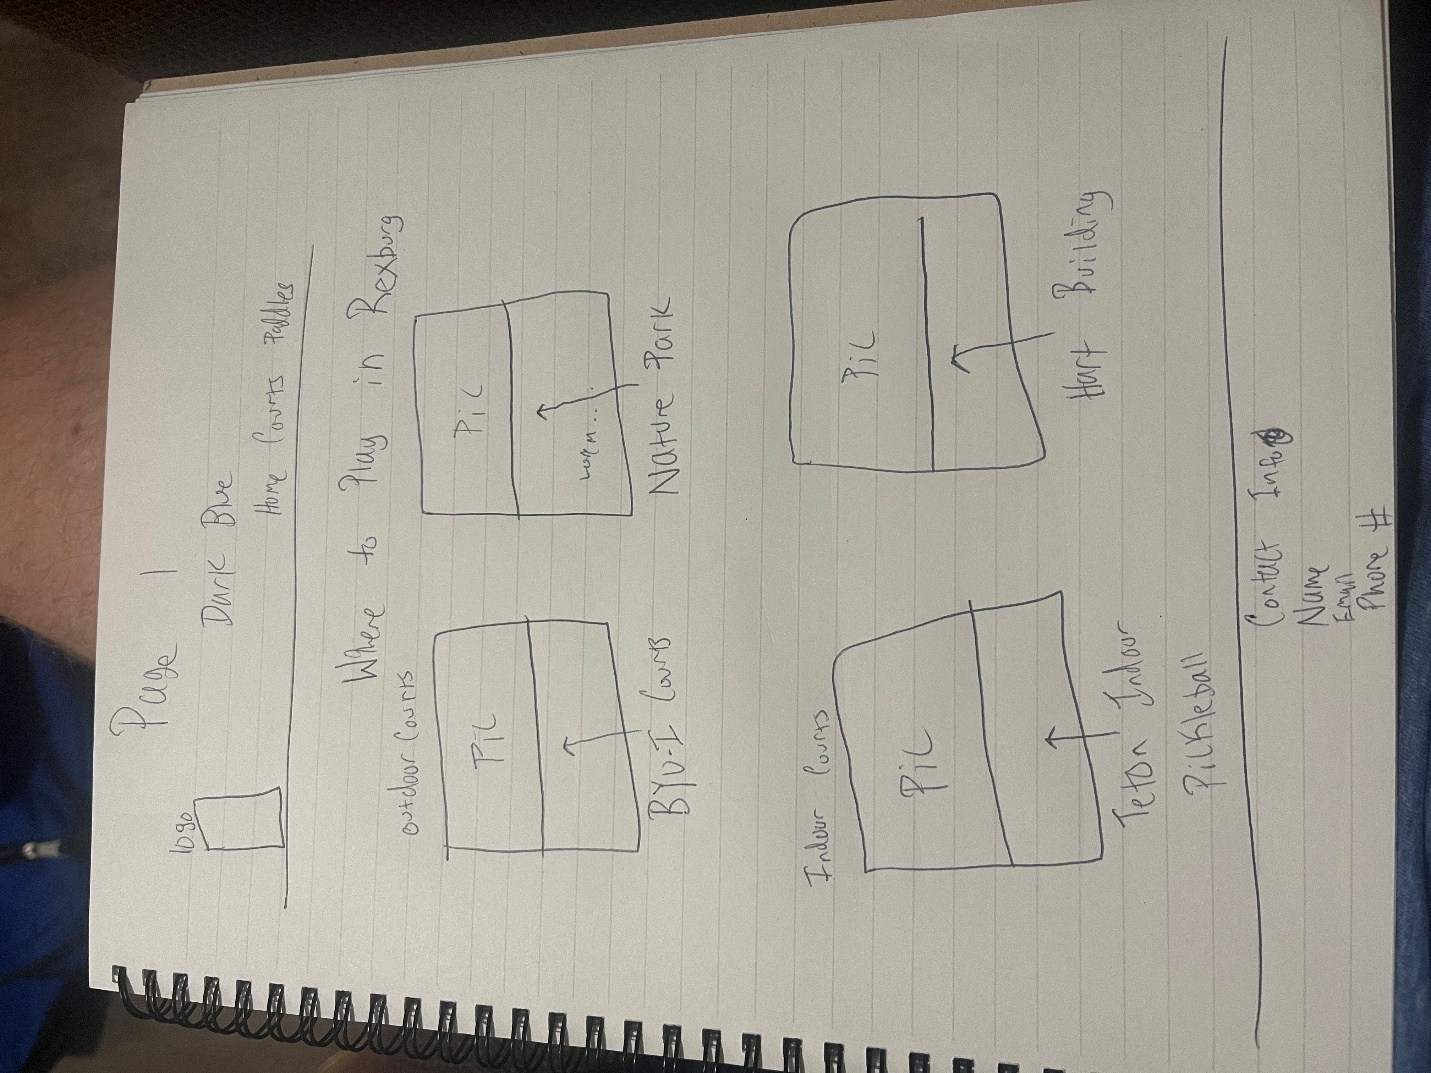 Page 1
logo
Dark Blue
Home Courts Paddles
Where to Play in Rexburg
Outdoor Courts
Pic
Pic
Lorem...
BYU-I Courts
Nature Park
Indoor Courts
Pic
Pic
Teton Indoor
Pickleball
Hart Building
Contact Info
Name
Email
Phone #